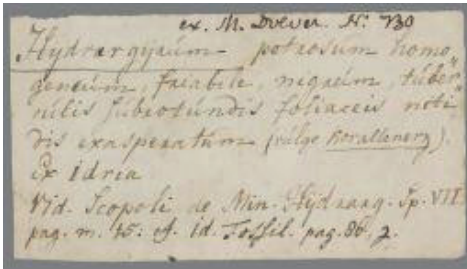 ex. M. Drever. N. 730
Hydrargyrum petrosum homo"
geneum, friabile, nigrum, tuber"
culis subrotundis foliaceis niti
dis exasperatum (vulgo Korallenerz).
Ex Idria
Vid. Scopoli de Min. Hydrarg. Sp. VII.
pag. m. 15. cf. id. Fossil. pag. 86. 2.